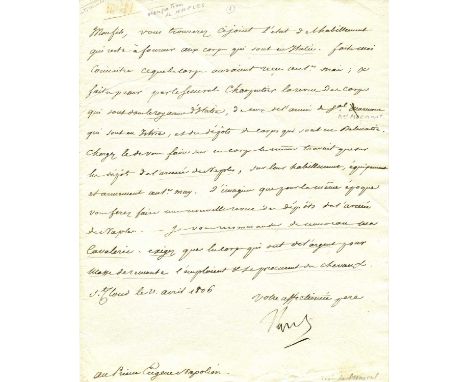 Mon fils, vous trouverez ci joint l'etat de l'habillement
qui reste à fournir aux corps qui sont en Italie. faite moi
connaitre ce que le corps auraient recu au 1er mai; &
faite passer par le General Charpentier la revue des corps
qui sont dans le royaume d'Italie, de ceux de l'armée de
qui sont en Istrie, et du dépot de corps qui sont en Dalmatie.
Chargez le de vous faire sur ces corps le même travail que sur
les dépôt de l'armée de Naples, sur leur habillement, équipement
et armement au 1er may. J'imagine que pour la même époque
vous ferez faire une nouvelle revue des dépôts de l'armée
de Naples. Je vous recommande de nouveau ma
Cavalerie. exigez que les corps qui ont de l'argent pour
l'emploient & se procurent des chevaux.
St Cloud le 11 avril 1806
votre affectionné pere
au Prince Eugene Napoléon.